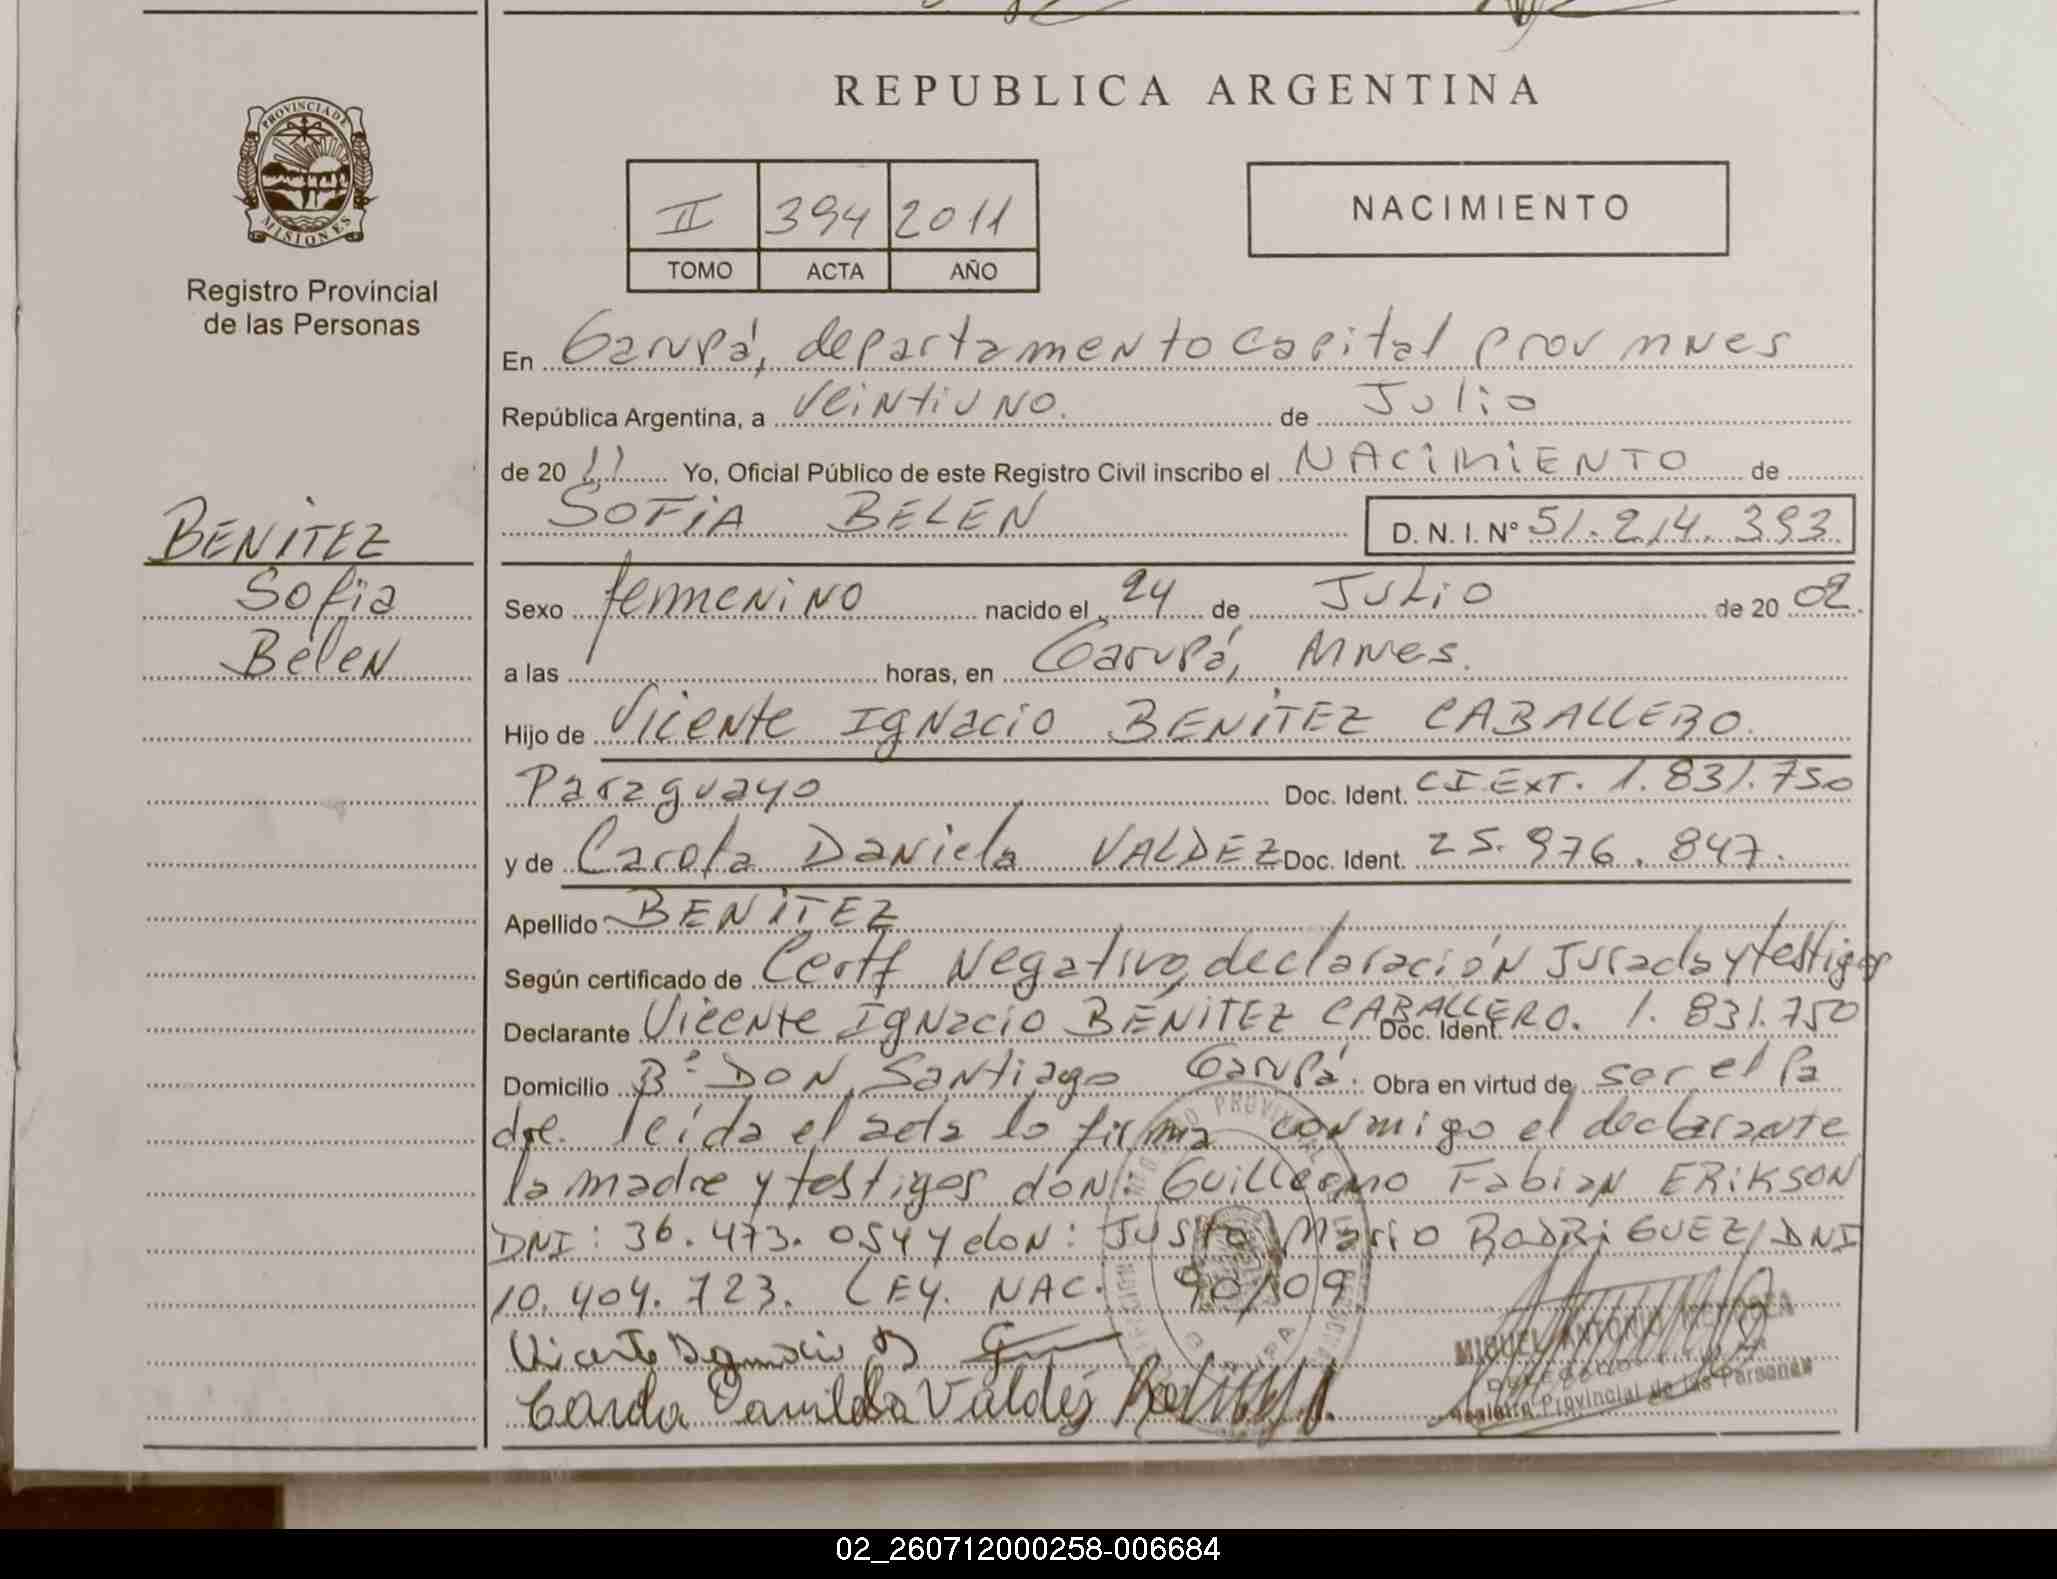 PROVINCIA DE
MISIONES
Registro Provincial
de las Personas
BENITEZ
Sofia
Belen
REPUBLICA ARGENTINA
II 394 2011
TOMO ACTA AÑO
NACIMIENTO
En Garupá, departamento capital prov mnes
República Argentina, a veintiuno. de Julio
de 20 11 Yo, Oficial Público de este Registro Civil inscribo el NACIMIENTO de
SOFIA BELEN D. N. I. N° 51.214.393
Sexo femenino nacido el 24 de JULIO de 20 02.
a las horas, en Garupá, Mnes.
Hijo de Vicente Ignacio BENITEZ CABALLERO.
Paraguayo Doc. Ident. CI.EXT. 1.831.750
y de Carola Daniela VALDEZ Doc. Ident. 25.976.847.
Apellido BENITEZ
Según certificado de Certf Negativo, declaración Jurada y testigos
Declarante Vicente Ignacio BENITEZ CABALLERO. Doc. Ident. 1.831.750
Domicilio B° DON Santiago Garupá. Obra en virtud de ser el pa
dre. leída el acta lo firma conmigo el declarante
la madre y testigos don: Guillermo Fabian ERIKSON
DNI: 36.473.054 y don: Justo Mario RODRIGUEZ/DNI
10.404.723. LEY. NAC. 90/09
Vicente Ignacio B
Valdez
MIGUEL ANTONIO
Registro Provincial de las Personas
02_260712000258-006684